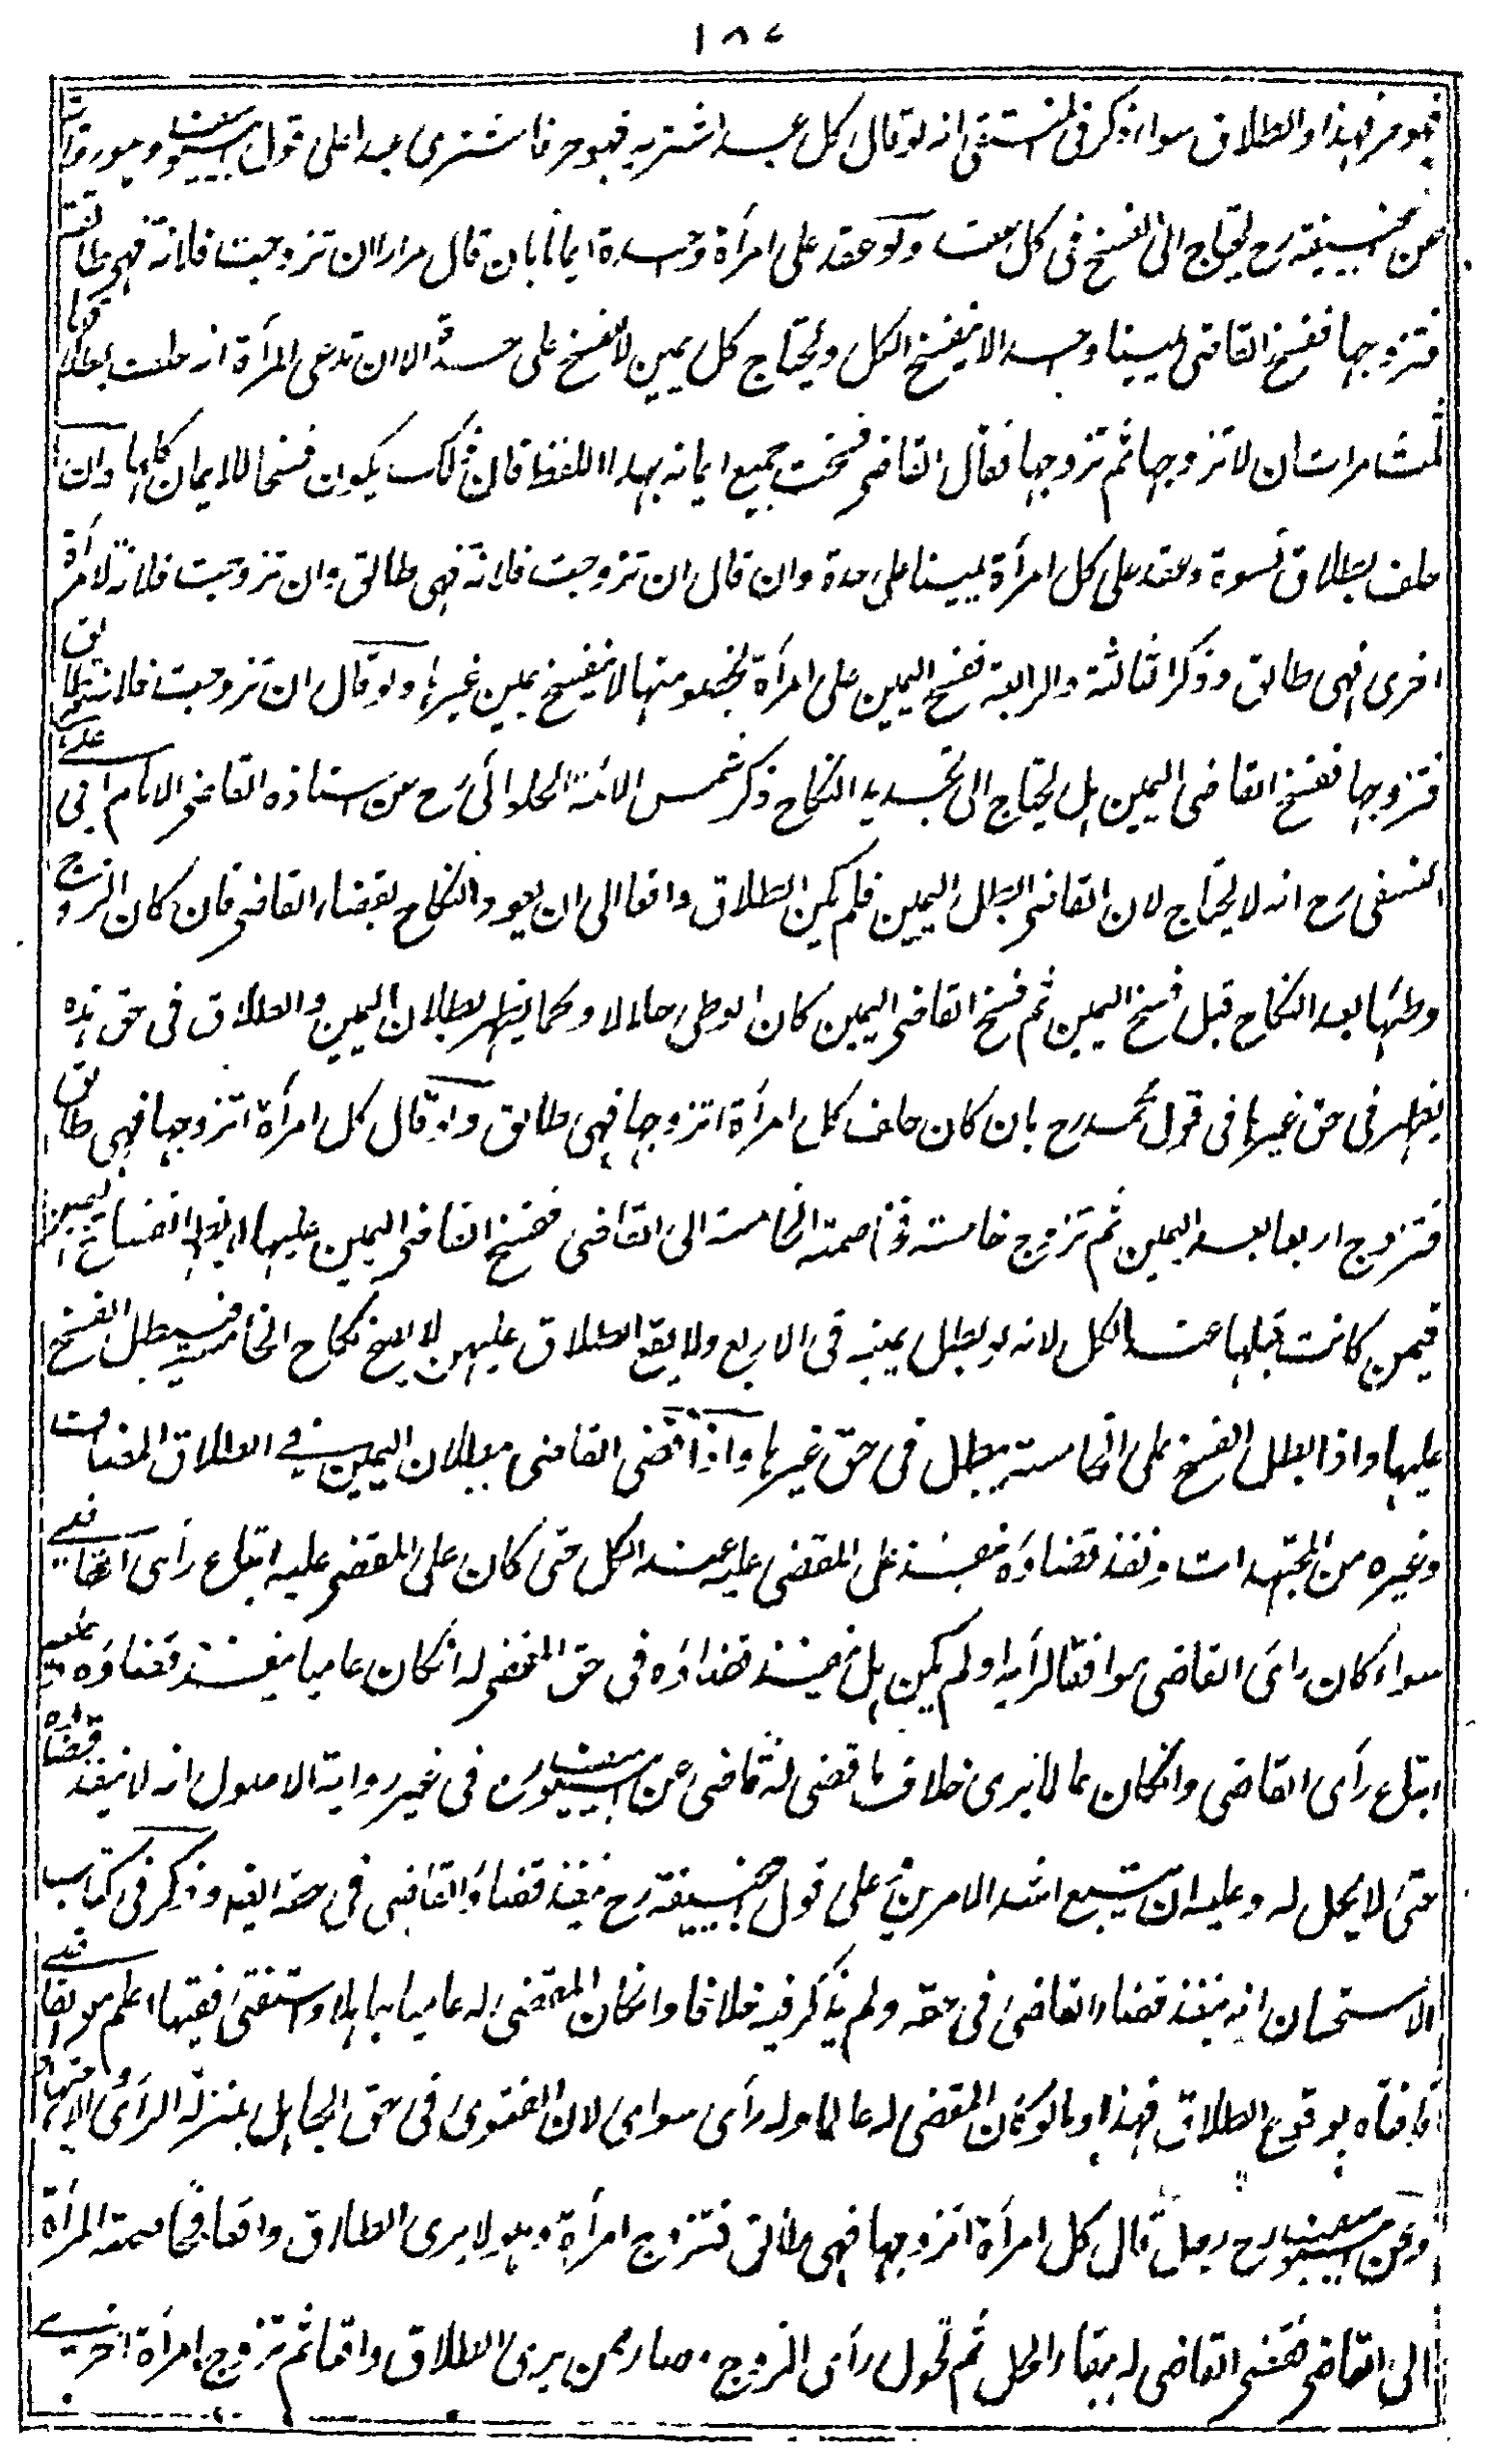 ١٨٤
فهو حر فهذا والطلاق سواء ذكر فى المنتقى انه لو قال كل عبد اشتريه فهو حر فاشترى عبدا على قول ابي يوسف وهو رواية
عن ابي حنيفة رح يحتاج الى الفسخ فى كل عبد ولو عقد على امرأة واحدة ايمانا بان قال مرارا ان تزوجت فلانة فهى طالق
فتزوجها ففسخ القاضى يمينا واحدا لا ينفسخ الكل ويحتاج كل يمين لا لفسخ على حدة الا ان تدعى المرأة انه حلف بطلاقها
ثلث مرات ان لا تزوجها ثم تزوجها فقال القاضى فسخت جميع ايمانه بهذا اللفظ قال ذلك يكون فسخا للايمان كلها وان
حلف بطلاق نسوة وعقد على كل امرأة يمينا على حدة وان قال ان تزوجت فلانة فهى طالق وان تزوجت فلانة لامرأة
اخرى فهى طالق وذكر الثالثة والرابعة ففسخ اليمين على امرأة منها لا ينفسخ يمين غيرها ولو قال ان تزوجت فلانة فهى طالق
فتزوجها ففسخ القاضى اليمين هل يحتاج الى تجديد النكاح ذكر شمس الائمة الحلوائى رح عن استاذه القاضى الامام ابى على
النسفى رح انه لا يحتاج لان القاضى ابطل اليمين فلم يكن الطلاق واقعا الى ان يعود النكاح بقضاء القاضى فان كان الزوج
وطئها بعد النكاح قبل فسخ اليمين ثم فسخ القاضى اليمين كان الوطى حلالا وكما يظهر بطلان اليمين والطلاق فى حق هذه
يظهر فى حق غيرها فى قول محمد رح بان كان حلف كل امرأة اتزوجها فهى طالق ولو قال كل امرأة اتزوجها فهى طالق
فتزوج اربعا بعد اليمين ثم تزوج خامسة فخاصمته الخامسة الى القاضى ففسخ القاضى اليمين عليها انفساخ اليمين
فيمن كانت قبلها عند الكل لانه لو بطل يمينه فى الاربع ولا يقع الطلاق عليهن لا يصح نكاح الخامسة فيبطل الفسخ
عليها واذا بطل الفسخ على الخامسة يبطل فى حق غيرها واذا قضى القاضى ببطلان اليمين فى الطلاق المضاف
وغيره من المجتهدات ونفذ قضاؤه ينفذ على المقضى عليه عند الكل حتى كان على المقضى عليه اتباع رأى القاضى
سواء كان راى القاضى موافقا لرأيه او لم يكن هل ينفذ قضاؤه فى حق المقضى له انكان عاميا ينفذ قضاؤه وعليه
اتباع رأى القاضى وانكان عالما يرى خلاف ما قضى له القاضى عن ابي يوسف رح فى غير رواية الاصول انه لا ينفذ قضاؤه
حتى لا يحل له وعليه ان يتبع اشد الامرين على قول ابي حنيفة رح ينفذ قضاؤ القاضى فى حقه ايضا وذكر فى كتاب
الاستحسان انه ينفذ قضاء القاضى فى حقه ولم يذكر فيه خلافا وانكان المقضى له عاميا جاهلا واستفتى فقيها اعلم من القاضى
فافتاه بوقوع الطلاق فهذا وما لو كان المقضى له عالما وله رأى سواء لان الفتوى فى حق الجاهل بمنزلة الرأى والاجتهاد
وعن ابي يوسف رح رجل قال كل امرأة اتزوجها فهى طالق فتزوج امرأة وهو لا يرى الطلاق واقعا فخاصمته المرأة
الى القاضى فقضى القاضى له ببقاء الحل ثم تحول رأى الزوج وصار ممن يرى الطلاق واقعا ثم تزوج امرأة اخرى